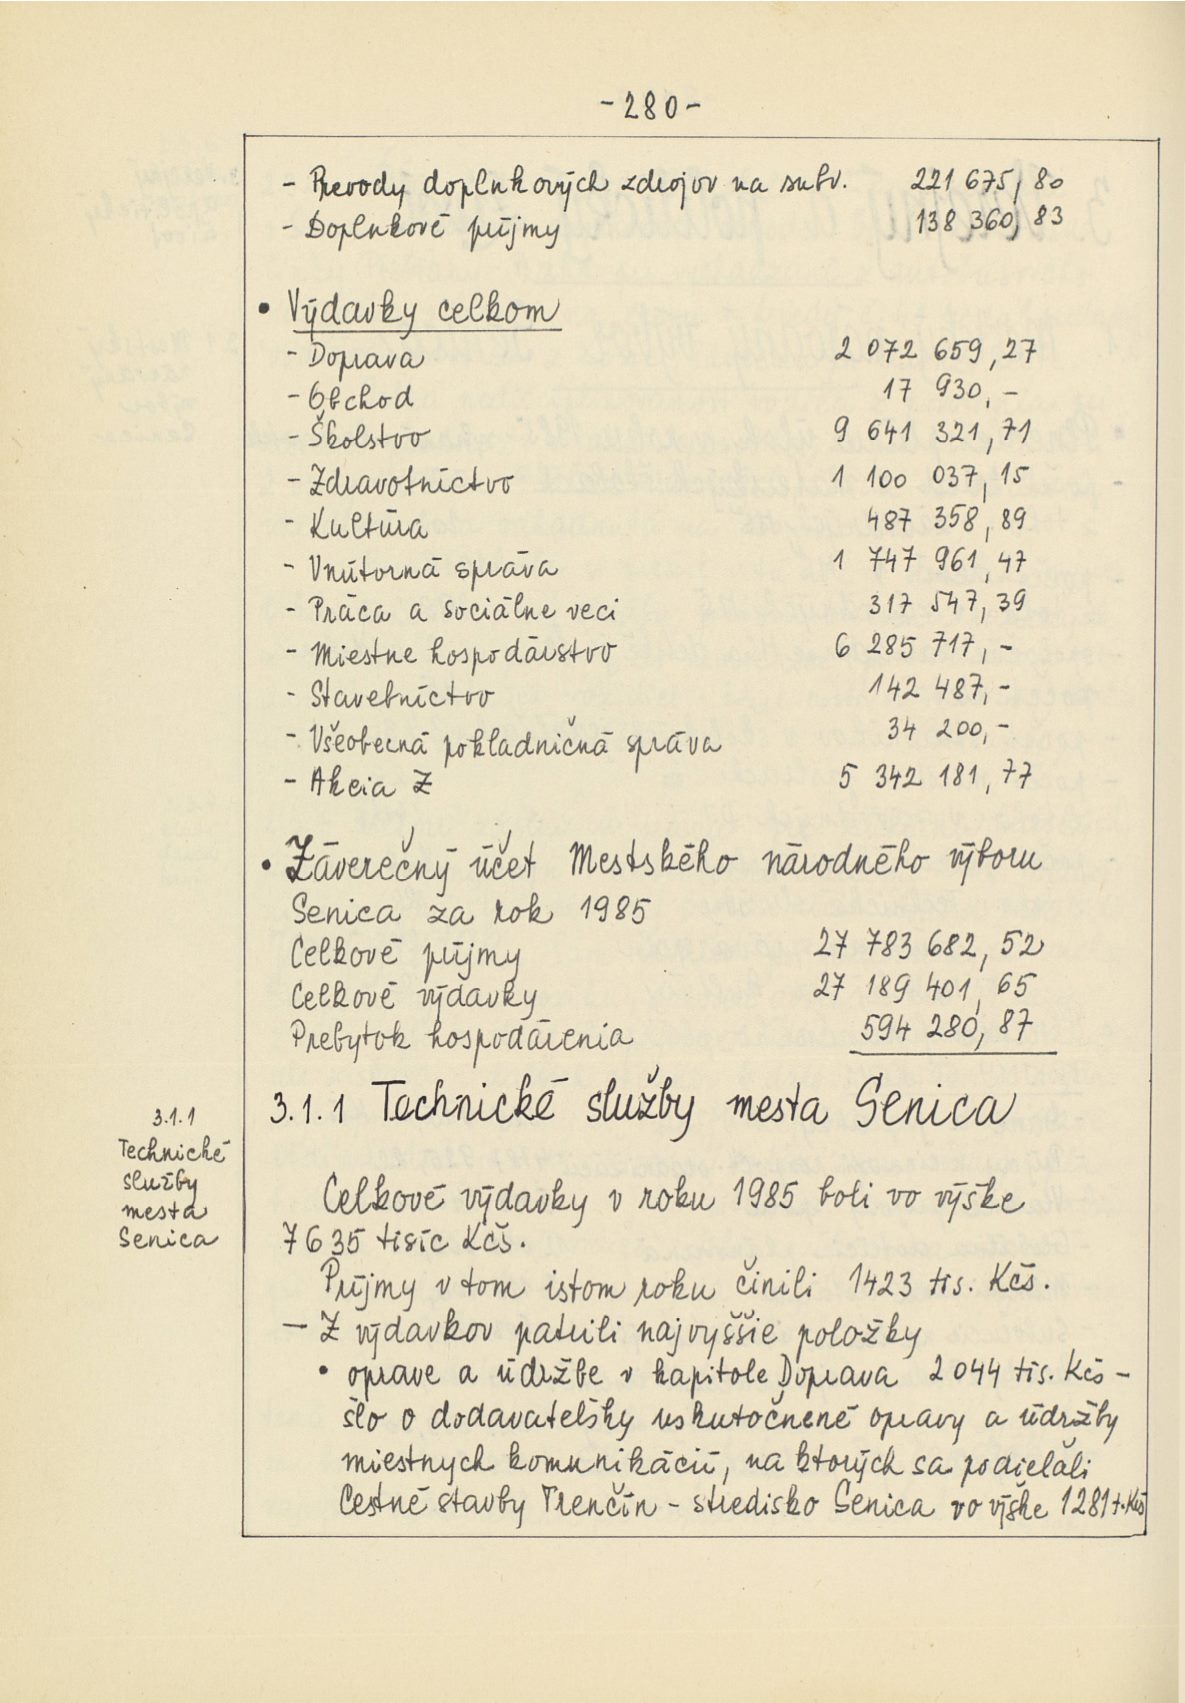 -280-
- Prevody doplnkových zdrojov na subv. 221 675,80
- Doplnkové príjmy 138 360,83
• Výdavky celkom
- Doprava 2 072 659,27
- Obchod 17 930,-
- Školstvo 9 641 321,71
- Zdravotníctvo 1 100 037,15
- Kultúra 487 358,89
- Vnútorná správa 1 747 961,47
- Práca a sociálne veci 317 547,39
- Miestne hospodárstvo 6 285 717,-
- Stavebníctvo 142 487,-
- Všeobecná pokladničná správa 34 200,-
- Akcia Z 5 342 181,77
• Záverečný účet Mestského národného výboru
Senica za rok 1985
Celkové príjmy 27 783 682,52
Celkové výdavky 27 189 401,65
Prebytok hospodárenia 594 280,87
3.1.1
Technické
služby
mesta
Senica
3.1.1 Technické služby mesta Senica
Celkové výdavky v roku 1985 boli vo výške
7635 tisíc Kčs.
Príjmy v tom istom roku činili 1423 tis. Kčs.
— Z výdavkov patrili najvyššie položky
• oprave a údržbe v kapitole Doprava 2 044 tis. Kčs -
šlo o dodávateľsky uskutočnené opravy a údržby
miestnych komunikácií, na ktorých sa podieľali
Cestné stavby Trenčín - stredisko Senica vo výške 1281 t. Kčs